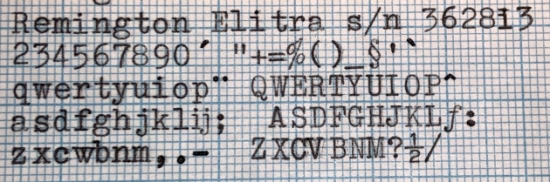 Remington Elitra s/n 362813
234567890´ "+=%()_§'`
qwertyuiop¨ QWERTYUIOP^
asdfghjklij; ASDFGHJKLƒ:
zxcwbnm,.- ZXCVBNM?½/